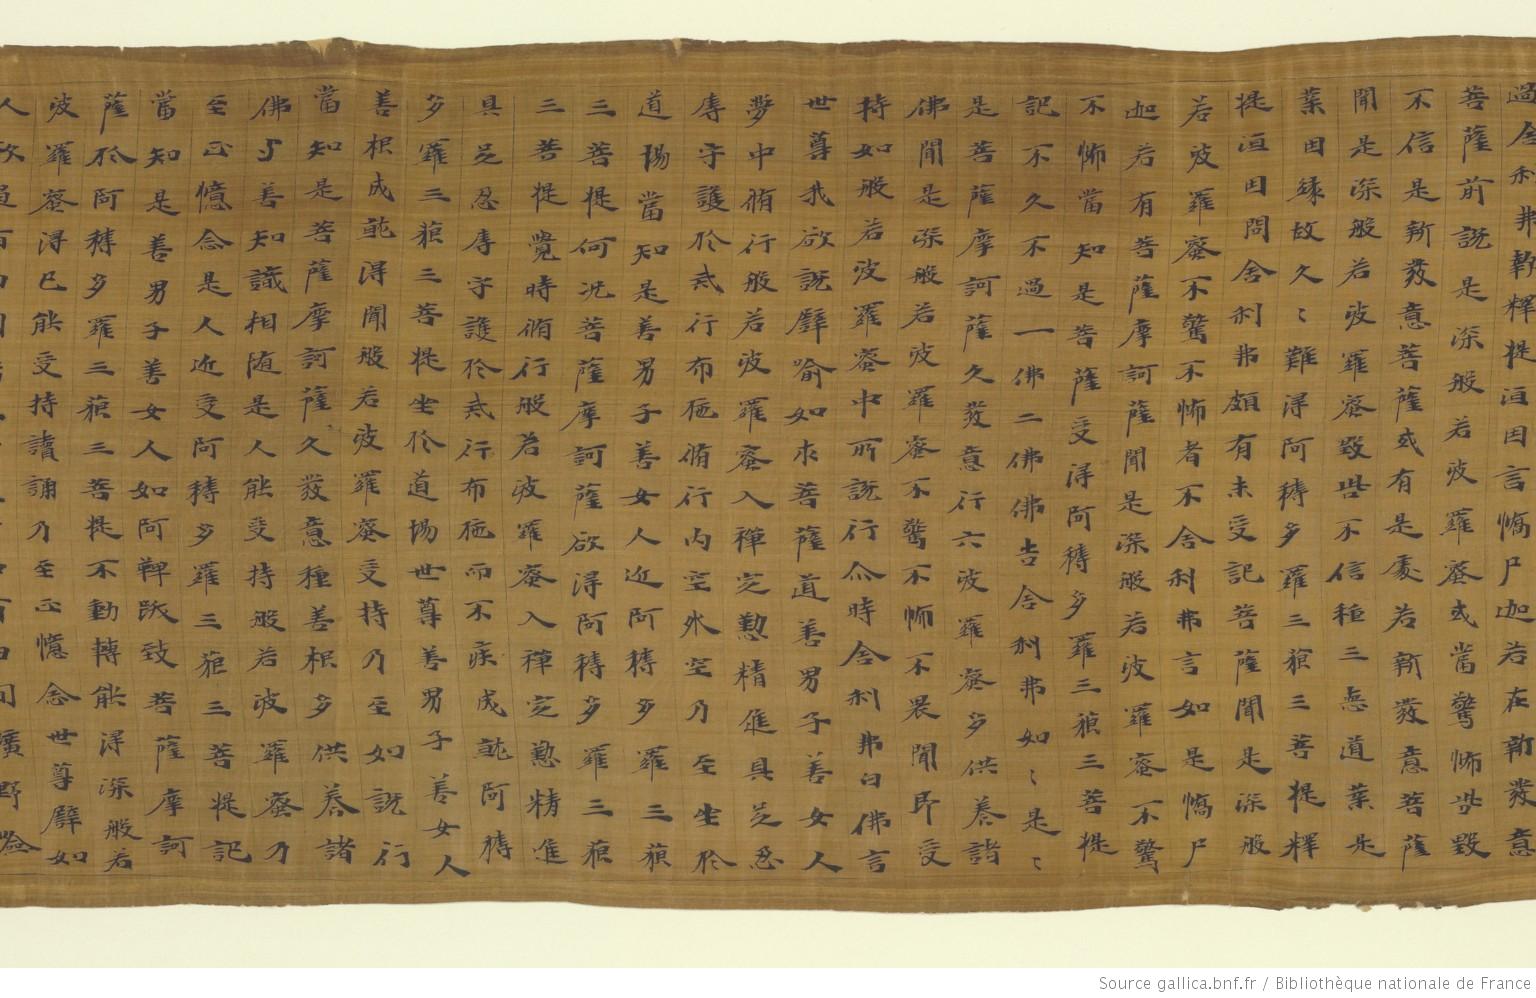 過舍利弗報釋提洹因言憍尸迦若在新發意
菩薩前說是深般若波羅蜜或當驚怖呰毀
不信是新發意菩薩或有是處若新發意菩薩
聞是深般若波羅蜜毀呰不信種三惡道業是
業因緣故久〻難得阿耨多羅三藐三菩提釋
提洹因問舍利弗頗有未受記菩薩聞是深般
若波羅蜜不驚不怖者不舍利弗言如是憍尸
迦若有菩薩摩訶薩聞是深般若波羅蜜不驚
不怖當知是菩薩受得阿耨多羅三藐三菩提
記不久不過一佛二佛佛告舍利弗如〻是〻
是菩薩摩訶薩久發意行六波羅蜜多供養諸
佛聞是深般若波羅蜜不驚不怖不畏聞即受
持如般若波羅蜜中所說行尒時舍利弗白佛言
世尊我欲說譬喻如求菩薩道善男子善女人
夢中脩行般若波羅蜜入禪定懃精進具足忍
辱守護於戒行布施脩行內空外空乃至坐於
道場當知是善男子善女人近阿耨多羅三藐
三菩提何況菩薩摩訶薩欲得阿耨多羅三藐
三菩提覺時脩行般若波羅蜜入禪定懃精進
具足忍辱守護於戒行布施而不疾成就阿耨
多羅三藐三菩提坐於道場世尊善男子善女人
善根成就得聞般若波羅蜜受持乃至如說行
當知是菩薩摩訶薩久發意種善根多供養諸
佛與善知識相隨是人能受持般若波羅蜜乃
至正憶念是人近受阿耨多羅三藐三菩提記
當知是善男子善女人如阿鞞跋致菩薩摩訶
薩於阿耨多羅三藐三菩提不動轉能得深般若
波羅蜜得已能受持讀誦乃至正憶念世尊譬如
人欲過百由旬
曠野險